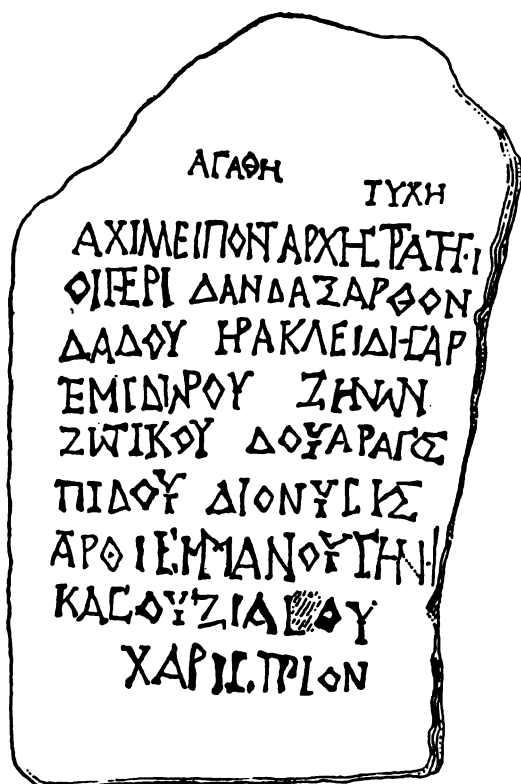 ΑΓΑΘΗ ΤΥΧΗ
ΑΧΙΛΛΕΙ ΠΟΝΤΑΡΧΗ ϹΤΡΑΤΗ·Ι
ΟΙ ΠΕΡΙ ΔΑΝΔΑΞΑΡΘΟΝ
ΔΑΔΟΥ ΗΡΑΚΛΕΙΔΗϹ ΑΡ
ΤΕΜΙΔΩΡΟΥ ΖΗΝΩΝ
ΖΩΤΙΚΟΥ ΔΟΥΑΡΑΓΟΣ
ΠΙΔΟΥ ΔΙΟΝΥϹΙΣ
ΑΡΘΙΕΜΜΑΝΟΥ
ΚΑϹΟΥ
ΧΑΡΙϹΤΗΡΙΟΝ